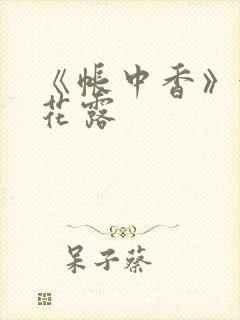 《帐中香》
花露
呆子蔡